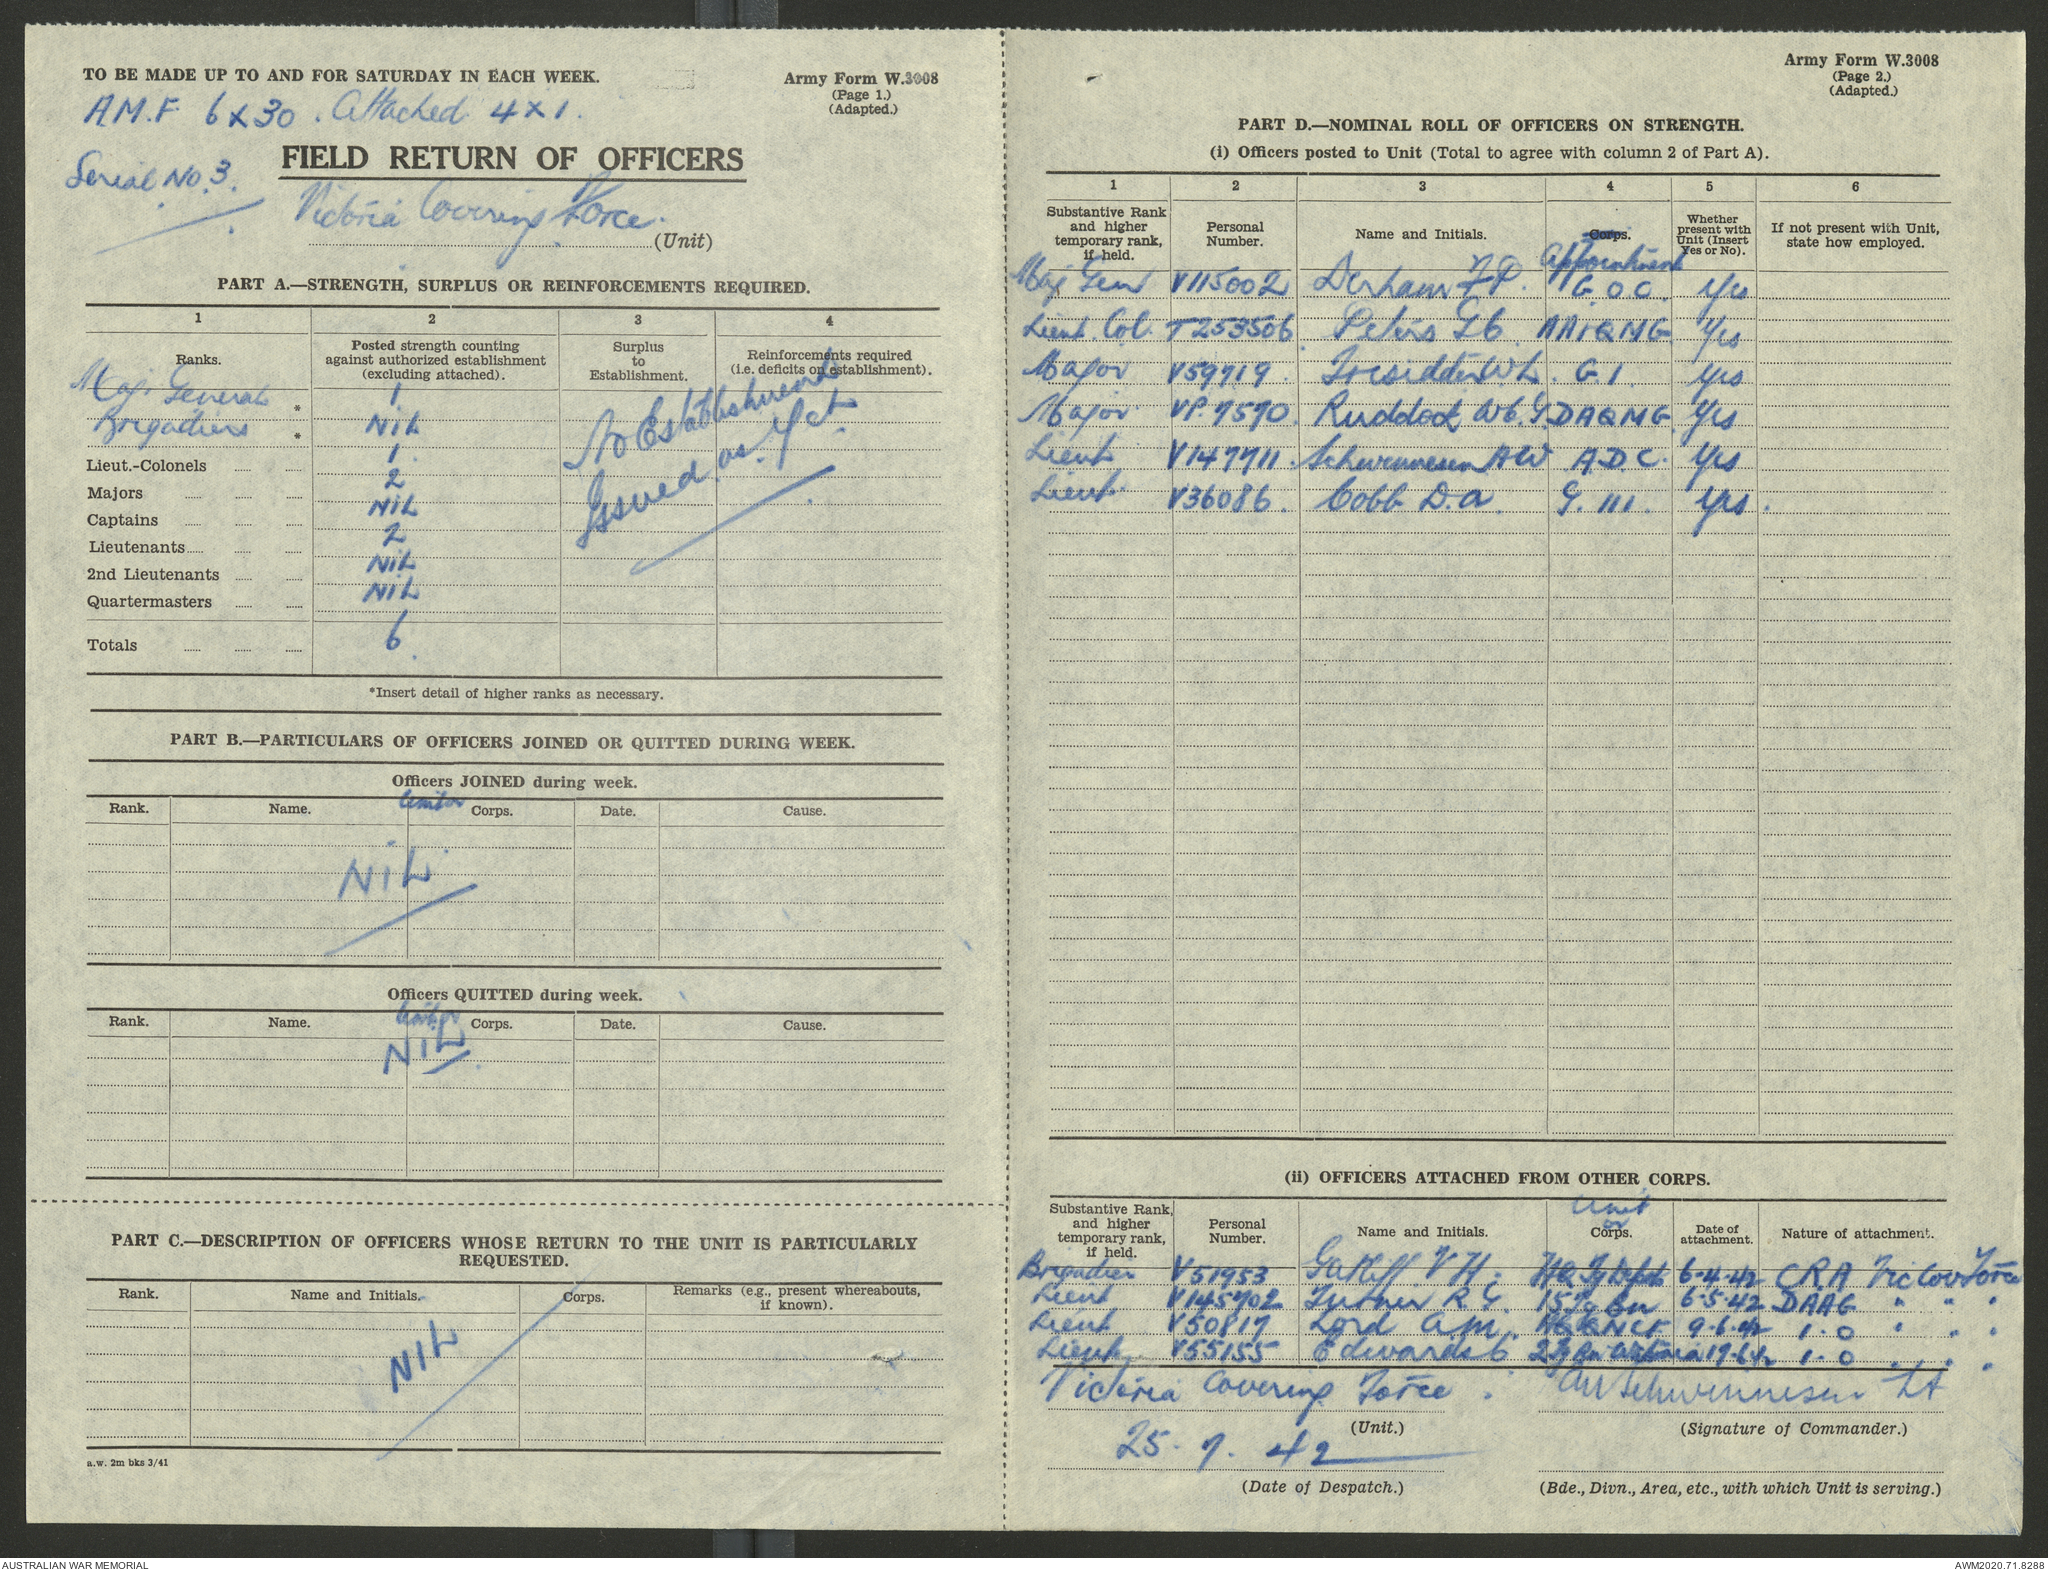 TO BE MADE UP TO AND FOR SATURDAY IN EACH WEEK.
Army Form W.3008
(Page 1.)
(Adapted.)
A.M.F. 6 x 30. Attached 4 x 1.
Serial No. 3.
FIELD RETURN OF OFFICERS
Victoria Covering Force.
(Unit)
PART A.—STRENGTH, SURPLUS OR REINFORCEMENTS REQUIRED.
1 2 3 4
Ranks.
Posted strength counting against authorized establishment (excluding attached).
Surplus to Establishment.
Reinforcements required (i.e. deficits on establishment).
Maj. General * 1
Brigadiers * NIL
Lieut.-Colonels 1
Majors 2
Captains NIL
Lieutenants 2
2nd Lieutenants NIL
Quartermasters NIL
Totals 6
No Establishment
Issued as Yet.
*Insert detail of higher ranks as necessary.
PART B.—PARTICULARS OF OFFICERS JOINED OR QUITTED DURING WEEK.
Officers JOINED during week.
Rank. Name. Unit or Corps. Date. Cause.
NIL
Officers QUITTED during week.
Rank. Name. Unit or Corps. Date. Cause.
NIL
PART C.—DESCRIPTION OF OFFICERS WHOSE RETURN TO THE UNIT IS PARTICULARLY
REQUESTED.
Rank. Name and Initials. Corps. Remarks (e.g., present whereabouts, if known).
NIL
a.w. 2m bks 3/41
Army Form W.3008
(Page 2.)
(Adapted.)
PART D.—NOMINAL ROLL OF OFFICERS ON STRENGTH.
(i) Officers posted to Unit (Total to agree with column 2 of Part A).
1 2 3 4 5 6
Substantive Rank and higher temporary rank, if held.
Personal Number.
Name and Initials.
Corps.
Appointment
Whether present with Unit (Insert Yes or No).
If not present with Unit, state how employed.
Maj Gen V115002 Derham F.P. G.O.C. Yes
Lieut. Col. T253506 Peters AA&QMG Yes
Major V59719 Tresidder W.L. G.1. Yes
Major VP.7570 Ruddock DAQMG Yes
Lieut V147711 Schwennesen AW A.D.C. Yes
Lieut V36086 Cobb D.A. G.III. Yes
(ii) OFFICERS ATTACHED FROM OTHER CORPS.
Substantive Rank, and higher temporary rank, if held.
Personal Number.
Name and Initials.
Unit or
Corps.
Date of attachment.
Nature of attachment.
Brigadier V51953 Gatliff V H. 6-4-42 CRA Vic Cov Force
Lieut V145702 Turner R.G. 15 Bn 6-5-42 DAAG " " "
Lieut V50817 Lord A.M. 9-6-42 I.O " " "
Lieut V55155 Edwards I.O " " "
Victoria Covering Force
AW Schwennesen Lt
(Unit.)
(Signature of Commander.)
25. 7. 42
(Date of Despatch.)
(Bde., Divn., Area, etc., with which Unit is serving.)
AUSTRALIAN WAR MEMORIAL
AWM2020.71.8288